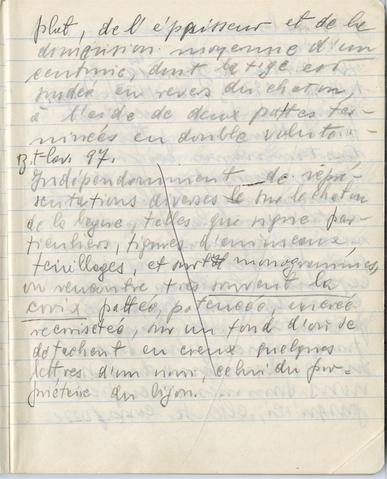 plat, de l'épaisseur et de la
dimension moyenne d'un
centime, dont la tige est
soudée en revers du chaton
à l'aide de deux pattes ter-
minées en double volute. -
97.
Indépendamment de repré-
sentations diverses sur le chaton
de la bague, telles que signe par-
ticuliers, figures d'animeaux,
feuillages, et monogrammes,
on rencontre très souvent la
croix pattée, potencée, ancrée
recroisetée, sur un fond d'où se
détachent en creux quelques
lettres d'un nom, celui du pro-
priétaire du bijou.